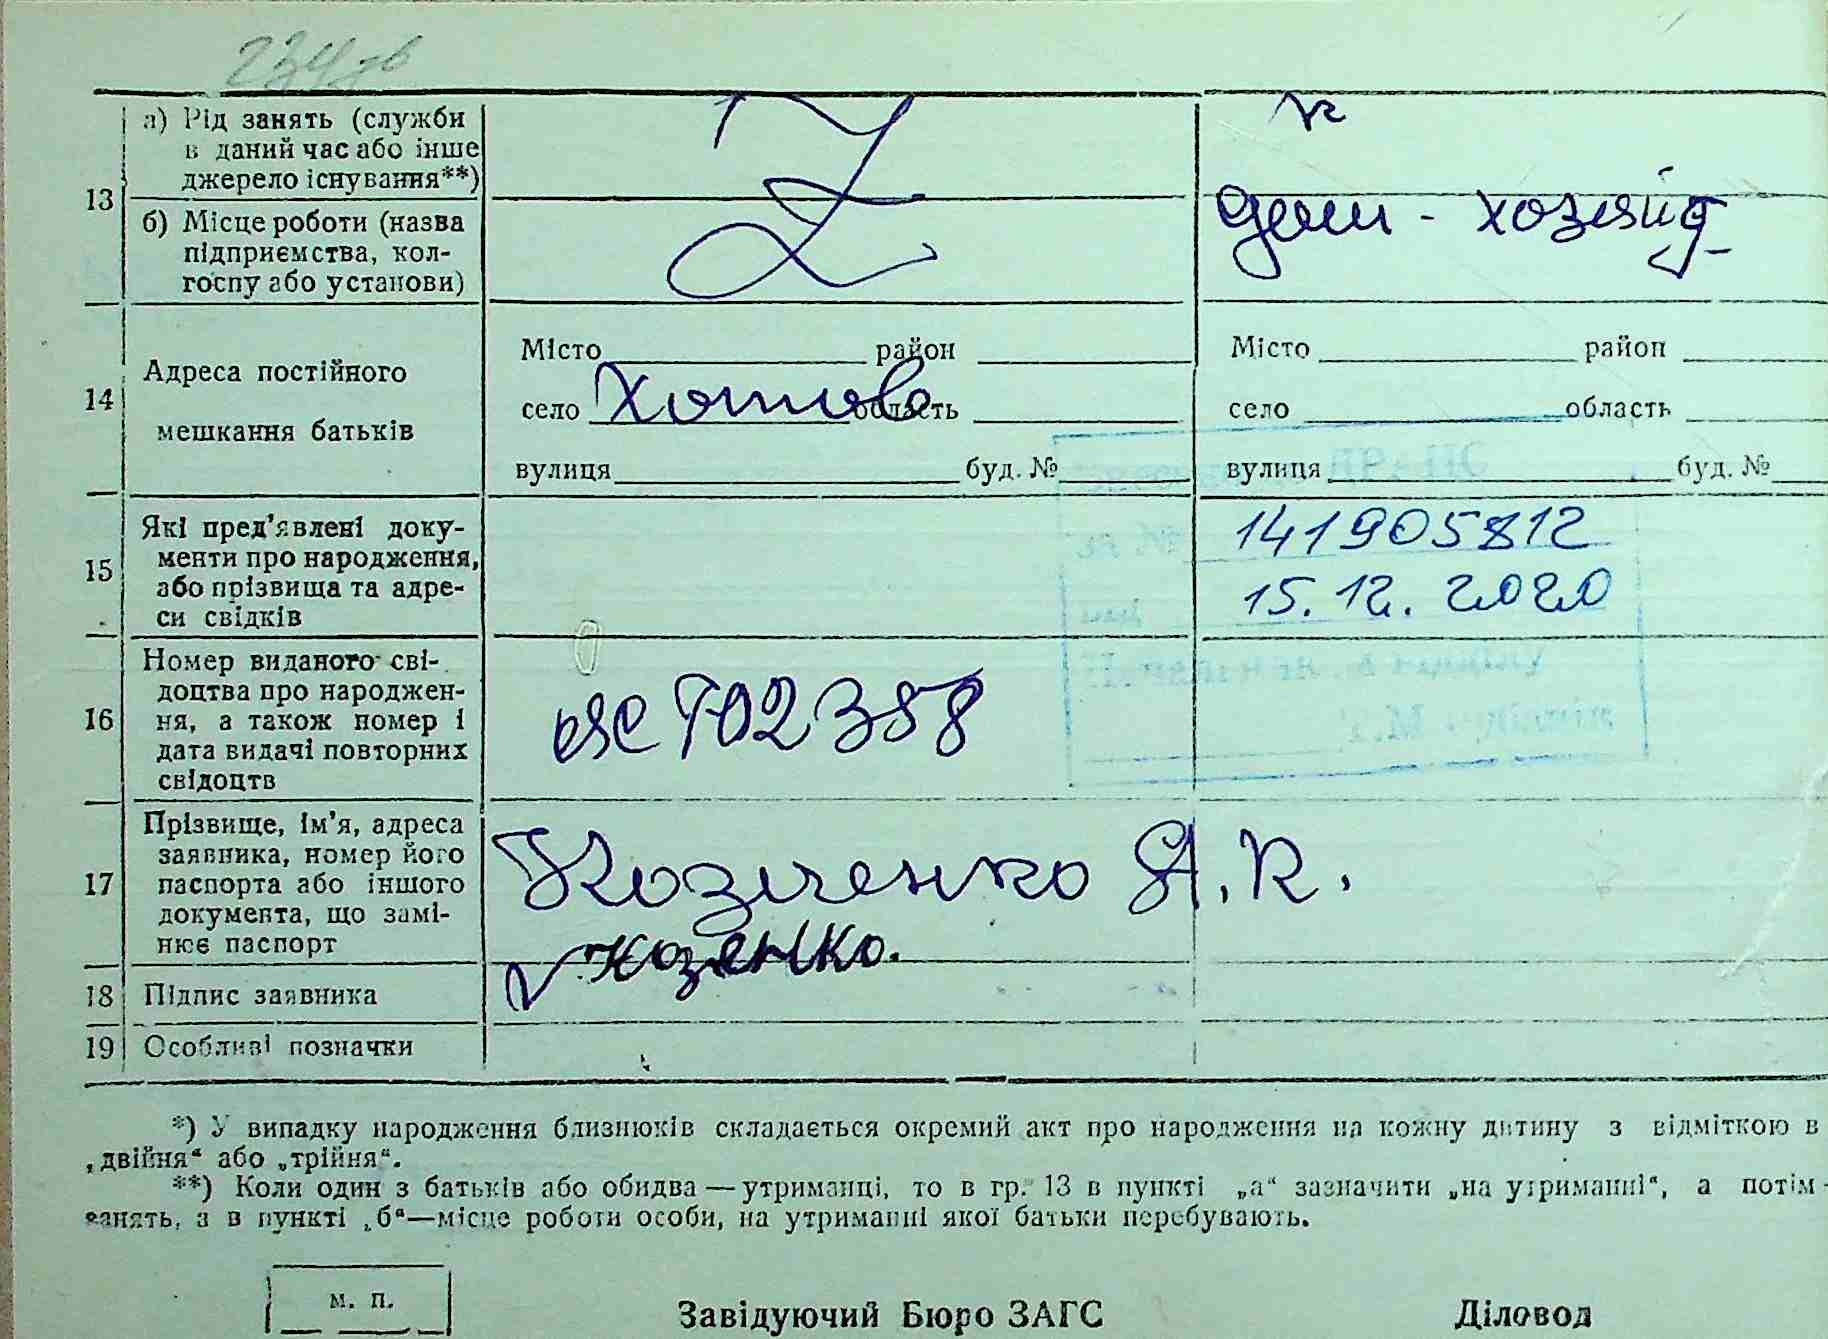 13
а) Рід занять (служби
в даний час або інше
джерело існування**)
б) Місце роботи (назва
підприємства, кол-
госпу або установи)
дом - хозяйс
14
Адреса постійного
мешкання батьків
Місто район
село Хотово область
вулиця буд. №
Місто район
село область
вулиця буд. №
15
Які пред'явлені доку-
менти про народження,
або прізвища та адре-
си свідків
141905812
15.12.2020
16
Номер виданого сві-
доцтва про народжен-
ня, а також номер і
дата видачі повторних
свідоцтв
702358
17
Прізвище, ім'я, адреса
заявника, номер його
паспорта або іншого
документа, що замі-
нює паспорт
Козіченко А. К.
18
Підпис заявника
Козенко.
19
Особливі позначки
*) У випадку народження близнюків складається окремий акт про народження на кожну дитину з відміткою в
„двійня“ або „трійня“.
**) Коли один з батьків або обидва — утриманці, то в гр. 13 в пункті „а“ зазначити „на утриманні“, а потім
занять, а в пункті „б“—місце роботи особи, на утриманні якої батьки перебувають.
м. п.
Завідуючий Бюро ЗАГС
Діловод